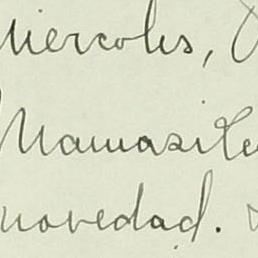 Miércoles,
Mamasite
novedad.